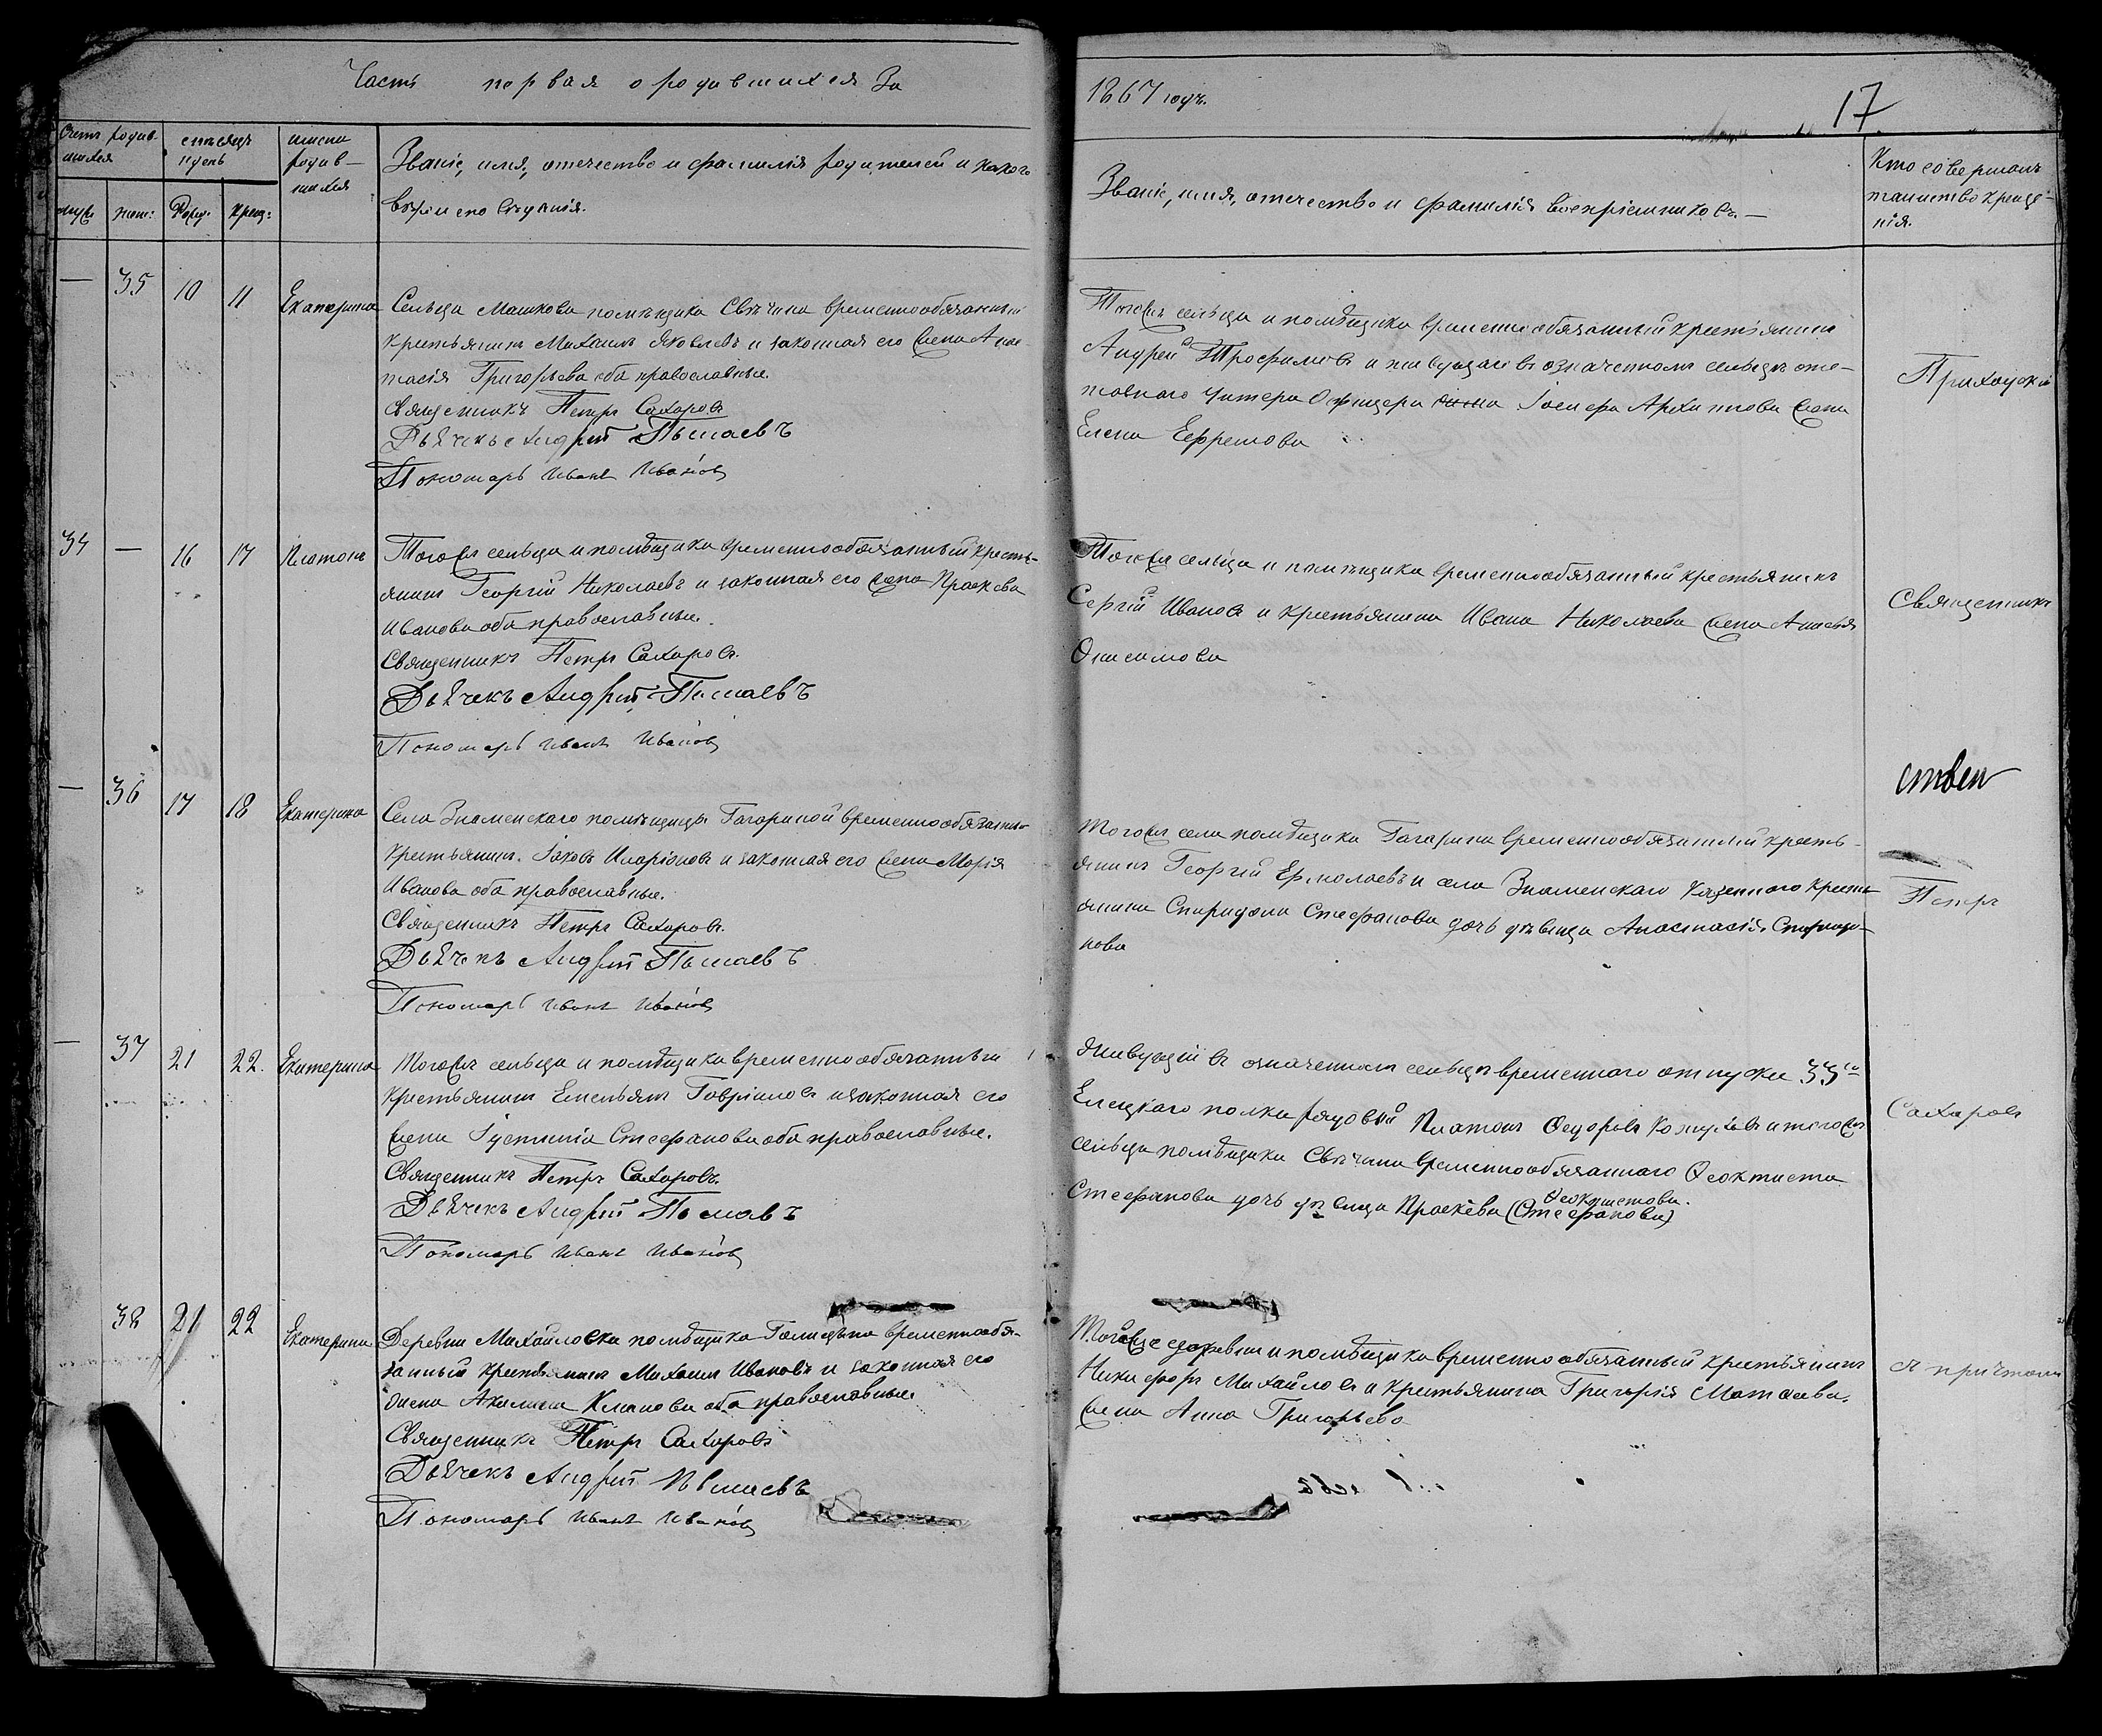 Часть первая о родившихся За
1867 годъ.
17
Счетъ родив-
шихся
муж: жен:
Мѣсяцъ
и день
Рожд: Крещ:
имена
родив-
шихся
Званіе, имя, отечество и фамилія родителей и какого
вѣроисповѣданія.
Званіе, имя, отечество и фамилія воспріемниковъ.—
Кто совершалъ
таинство креще-
нія.
— 35 10 11 Екатерина
Сельца Машкова помѣщика Свѣчина временнообязанный
крестьянинъ Михаилъ Яковлевъ и законная его жена Анас-
тасія Григорьева оба православные.
Священникъ Петръ Сахаровъ
Дьячекъ Андрей
Пономарь Иванъ Ивановъ
Тогожъ сельца и помѣщика временнообязанный крестьянинъ
Андрей Трофимовъ и живущаго въ означенномъ сельцѣ
Унтеръ Офицера Іосифа Архипова жена
Елена Ефремова
Приходскій
34 — 16 17 Платонъ
Тогожъ сельца и помѣщика временнообязанный кресть-
янинъ Георгій Николаевъ и законная его жена Праскева
Иванова оба православные.
Священникъ Петръ Сахаровъ.
Дьячекъ Андрей
Пономарь Иванъ Ивановъ
Тогожъ сельца и помѣщика временнообязанный крестьянинъ
Сергій Ивановъ и крестьянина Ивана Николаева жена
Онисимова
Священникъ
— 36 17 18 Екатерина
Села Знаменскаго помѣщицы Гагариной временнообязан-
крестьянинъ Іаковъ Иларіоновъ и законная его жена Марія
Иванова оба православные.
Священникъ Петръ Сахаровъ.
Дьячекъ Андрей
Пономарь Иванъ Ивановъ
Тогожъ села помѣщика Гагарина временнообязанный кресть-
янинъ Георгій Ермолаевъ и села Знаменскаго казеннаго кресть-
янина Спиридона Стефанова дочь дѣвица Анастасія Спиридо-
нова
Петръ
— 37 21 22. Екатерина
Тогожъ сельца и помѣщика временнообязанный
крестьянинъ Емельянъ Гавриловъ и законная его
жена Іустинія Стефанова оба православные.
Священникъ Петръ Сахаровъ.
Дьячекъ Андрей
Пономарь Иванъ Ивановъ
Живущій въ означенномъ сельцѣ временнаго отпуска 33го
Елецкаго полка рядовый Платонъ Ѳедоровъ Кожуховъ и тогожъ
сельца помѣщика Свѣчина временнообязаннаго Ѳеоктиста
Стефанова дочь дѣвица Праскева (Стефанова) Ѳеоктистова.
Сахаровъ
38 21 22 Екатерина
Деревни Михайловки помѣщика Голицына временнообя-
занный крестьянинъ Михаилъ Ивановъ и законная его
жена Акилина оба православные.
Священникъ Петръ Сахаровъ
Дьячекъ Андрей
Пономарь Иванъ Ивановъ
Тогоже деревни и помѣщика временнообязанный крестьянинъ
Никифоръ Михайловъ и крестьянина Григорія Матѳеева
жена Анна Григорьева
съ причтомъ